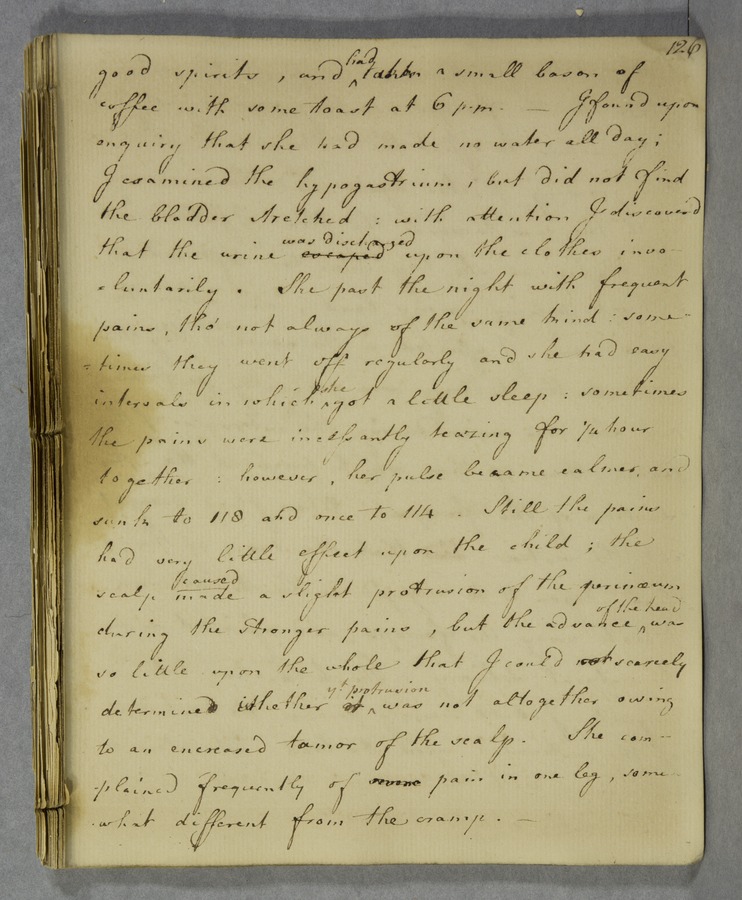 126
good spirits, and ^had taken a small bason of
coffee with some toast at 6 p.m. — I found upon
enquiry that she had made no water all day;
I examined the hypogastrium, but did not find
the bladder stretched: with attention I discover'd
that the urine escaped was discharged upon the clothes invo-
-luntarily. She past the night with frequent
pains, tho' not always of the same kind: some-
=times they went off regularly and she had easy
intervals in which ^she got a little sleep: sometimes
the pains were incessantly teazing for ½ hour
together: however, her pulse became calmer, and
sunk to 118 and once to 114. Still the pains
had very little effect upon the child; the
scalp made caused a slight protrusion of the perinæum
during the stronger pains, but the advance ^of the head was
so little upon the whole that I could not scarcely
determined whether it ^yt protrusion was not altogether owing
to an encreased tumor of the scalp. She com-
-plained frequently of pain in one leg, some-
-what different from the cramp. —